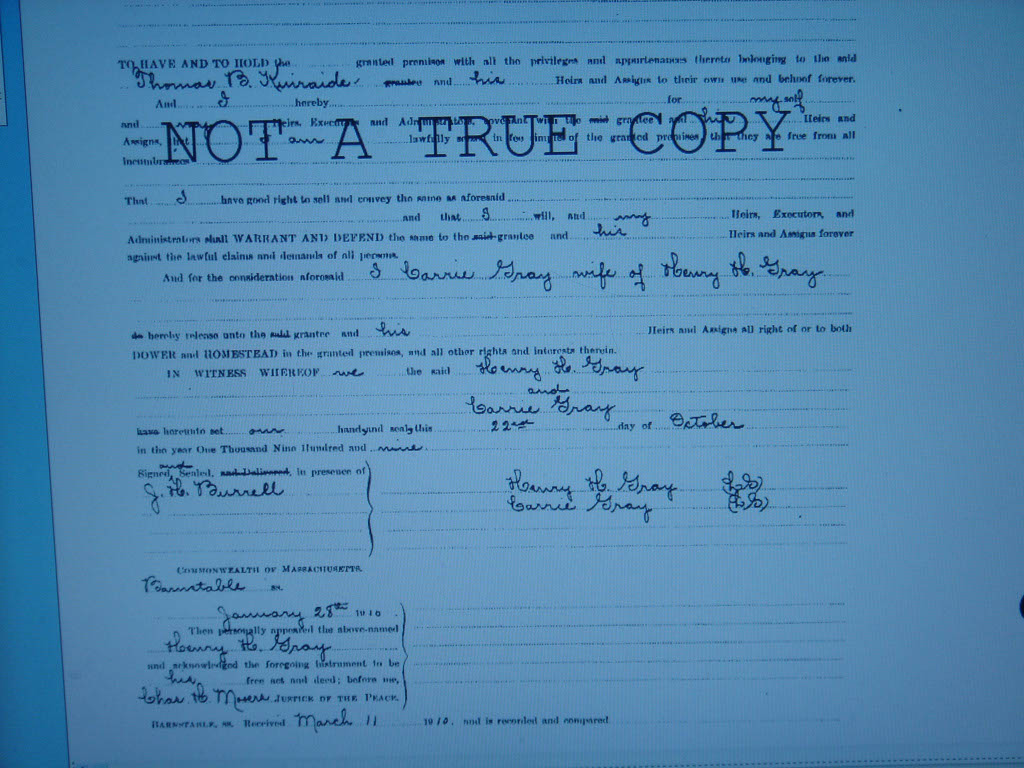 TO HAVE AND TO HOLD the granted premises with all the privileges and appurtenances thereto belonging to the said
Thomas B. Kinraide grantee and his Heirs and Assigns to their own use and behoof forever.
And I hereby for myself
and my Heirs, Executors and Administrators, covenant with the said grantee and his Heirs and
Assigns, that I am lawfully seized in fee simple of the granted premises that they are free from all
incumbrances
NOT A TRUE COPY
That I have good right to sell and convey the same as aforesaid
and that I will, and my Heirs, Executors, and
Administrators shall WARRANT AND DEFEND the same to the said grantee and his Heirs and Assigns forever
against the lawful claims and demands of all persons.
And for the consideration aforesaid I Carrie Gray wife of Henry H. Gray
do hereby release unto the said grantee and his Heirs and Assigns all right of or to both
DOWER and HOMESTEAD in the granted premises, and all other rights and interests therein.
IN WITNESS WHEREOF we the said Henry H. Gray
and
Carrie Gray
have hereunto set our hands and seals this 22nd day of October
in the year One Thousand Nine Hundred and nine.
Signed, and Sealed, and Delivered, in presence of
J. H. Burrell
Henry H. Gray (LS)
Carrie Gray (LS)
COMMONWEALTH OF MASSACHUSETTS.
Barnstable ss.
January 28th 1910
Then personally appeared the above-named
Henry H. Gray
and acknowledged the foregoing instrument to be
his free act and deed; before me,
Chas H. JUSTICE OF THE PEACE.
BARNSTABLE, ss. Received March 11 1910. and is recorded and compared